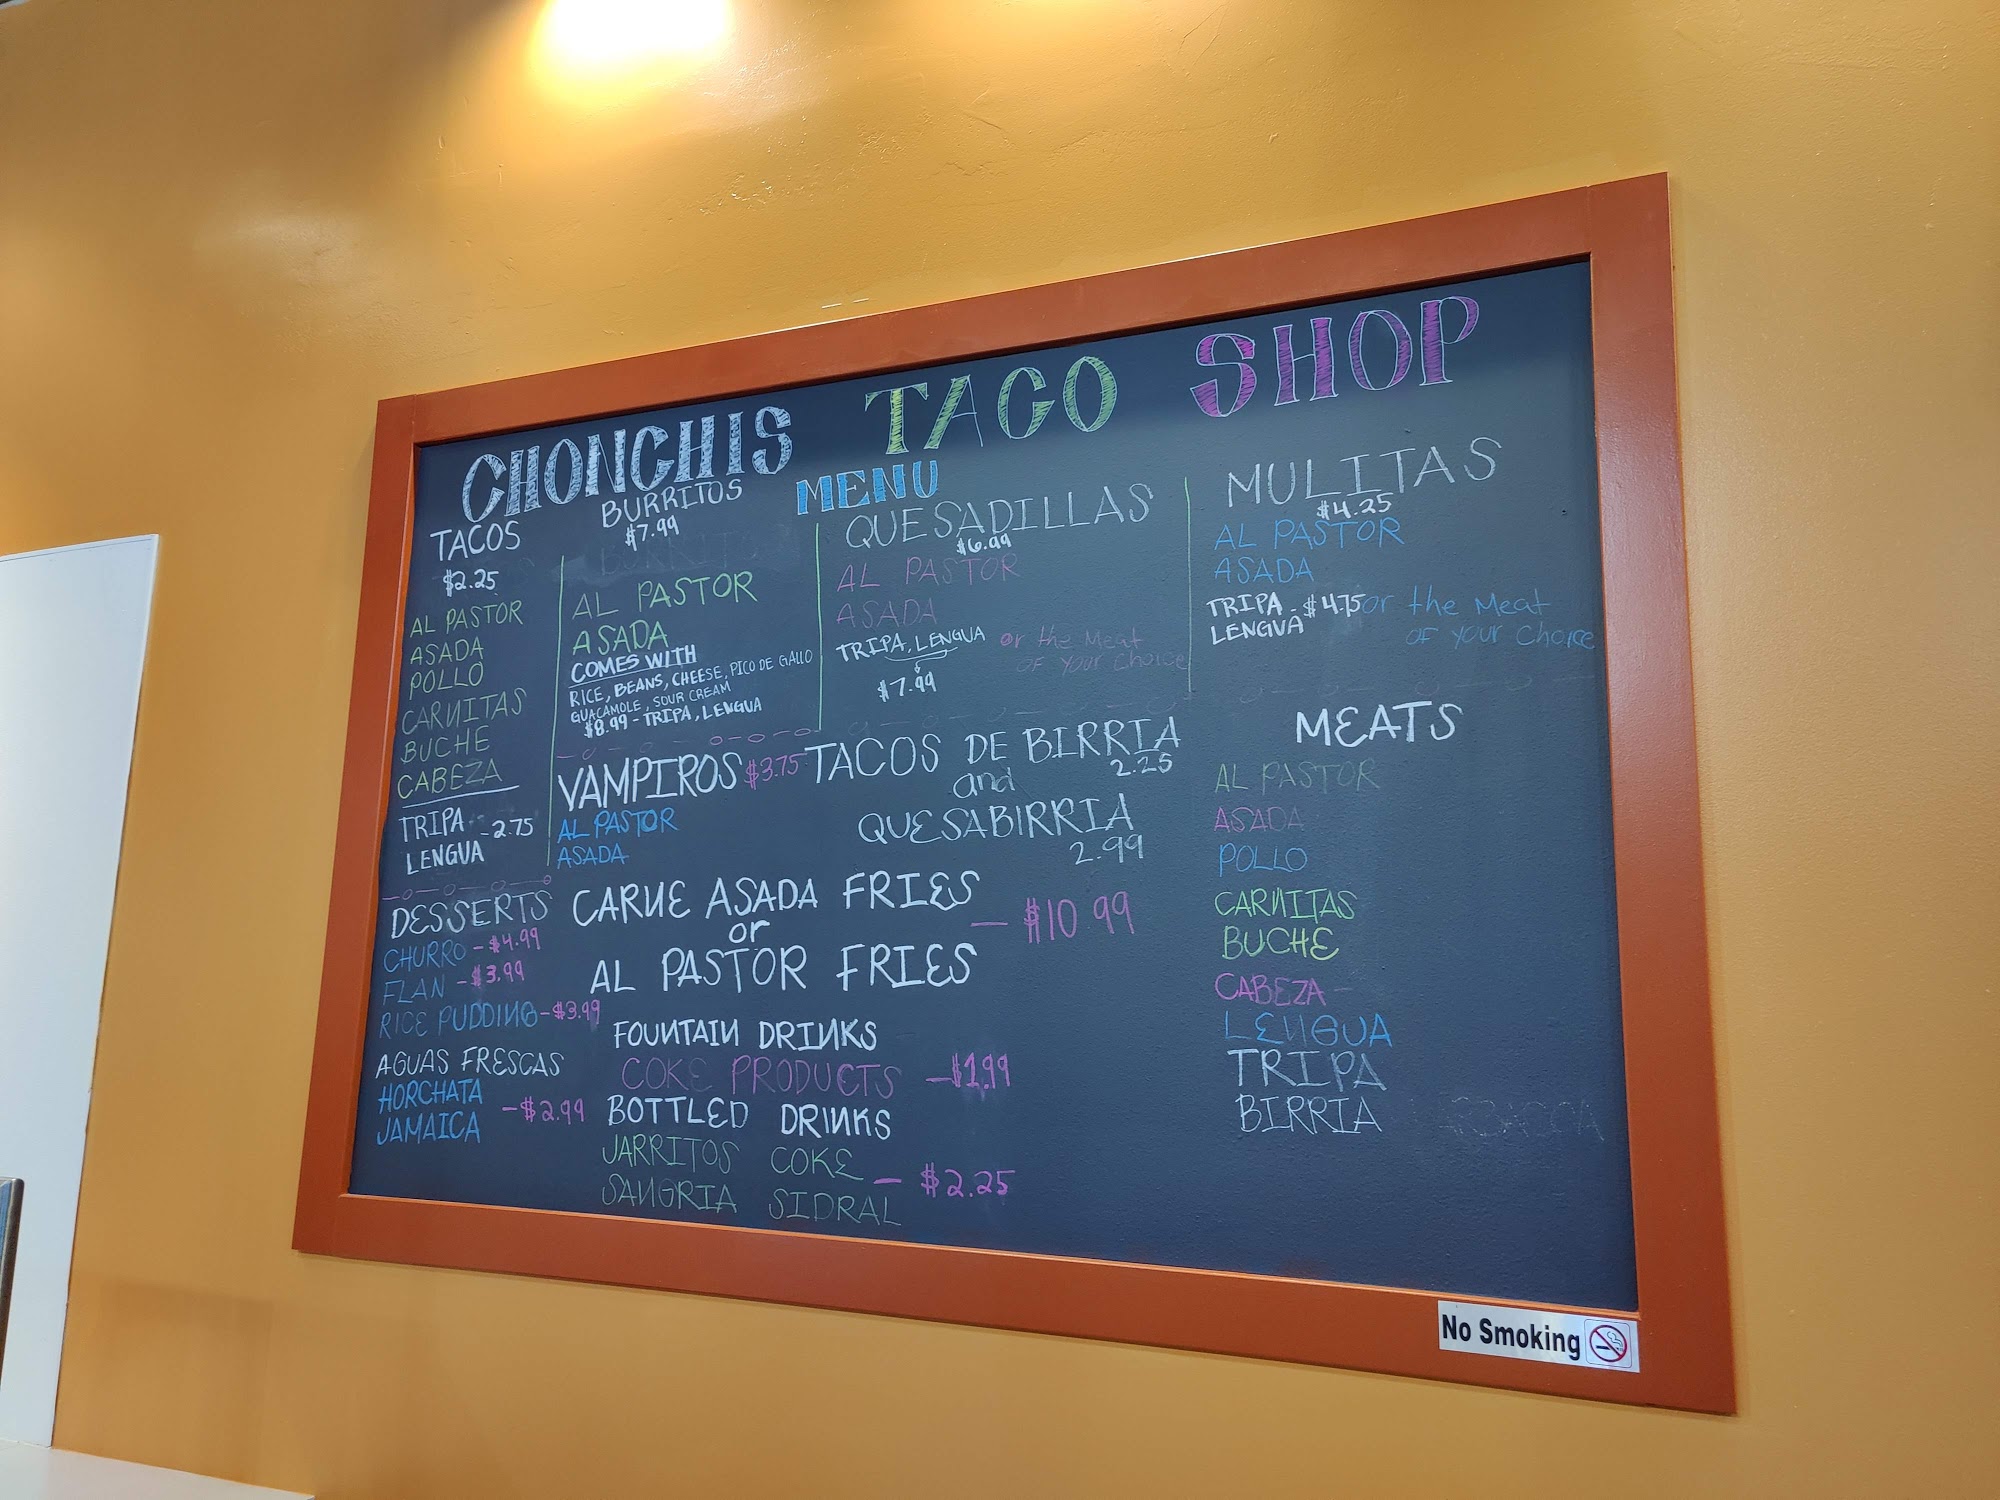 CHONCHIS TACO SHOP
MENU
TACOS
$2.25
AL PASTOR
ASADA
POLLO
CARNITAS
BUCHE
CABEZA
TRIPA - 2.75
LENGUA
BURRITOS
$7.99
AL PASTOR
ASADA
COMES WITH
RICE, BEANS, CHEESE, PICO DE GALLO
GUACAMOLE, SOUR CREAM
$8.99 - TRIPA, LENGUA
QUESADILLAS
$6.99
AL PASTOR
ASADA or the Meat
TRIPA, LENGUA of your Choice
$7.99
MULITAS
$4.25
AL PASTOR
ASADA
TRIPA - $4.75 or the Meat
LENGUA OF your Choice
VAMPIROS $3.75
AL PASTOR
ASADA
TACOS DE BIRRIA
2.25
and
QUESABIRRIA
2.99
MEATS
AL PASTOR
ASADA
POLLO
CARNITAS
BUCHE
CABEZA
LENGUA
TRIPA
BIRRIA
CARNE ASADA FRIES
or — $10.99
AL PASTOR FRIES
DESSERTS
CHURRO - $4.99
FLAN - $3.99
RICE PUDDING - $3.99
AGUAS FRESCAS
HORCHATA
JAMAICA - $2.99
FOUNTAIN DRINKS
COKE PRODUCTS - $1.99
BOTTLED DRINKS
JARRITOS COKE
SANGRIA SIDRAL - $2.25
No Smoking